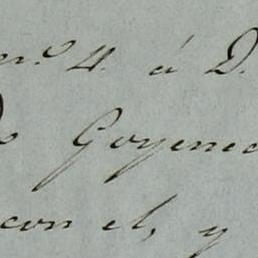 n.º 4. á D.
Goyene
con el, y